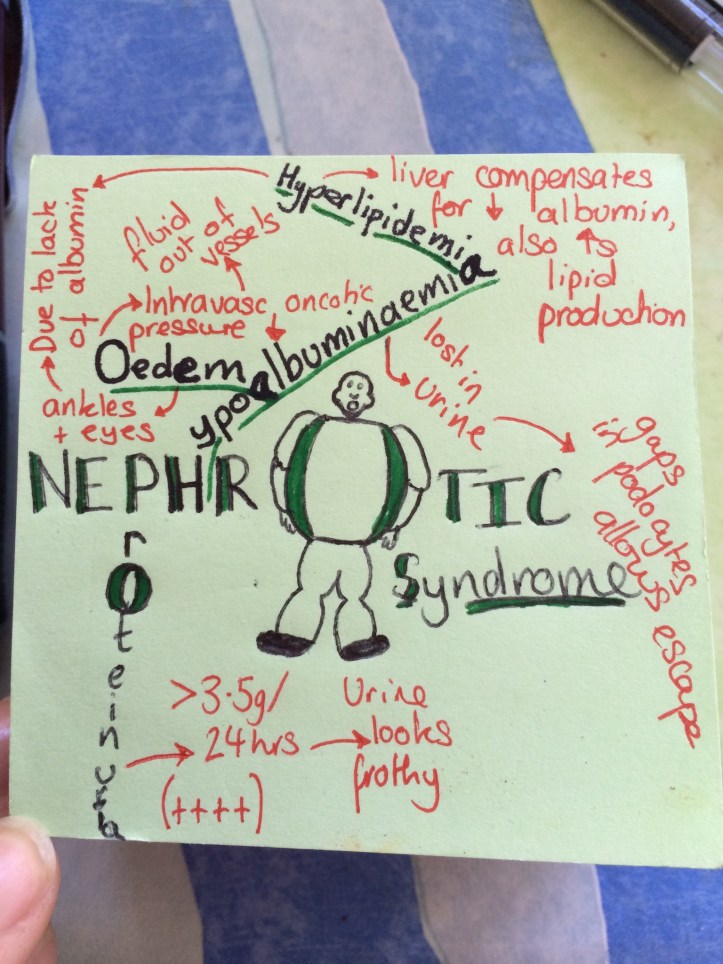 Hyperlipidemia
liver compensates
for ↓ albumin,
also ↑s
lipid
production
Due to lack
of albumin
fluid
out of
vessels
Intravasc oncotic
pressure
Oedema
ankles
+ eyes
ypoalbuminaemia
lost in
urine
gaps
in podocytes
allows escape
NEPHROTIC
Syndrome
roteinuria
>3.5g/
24hrs
(++++)
Urine
looks
frothy